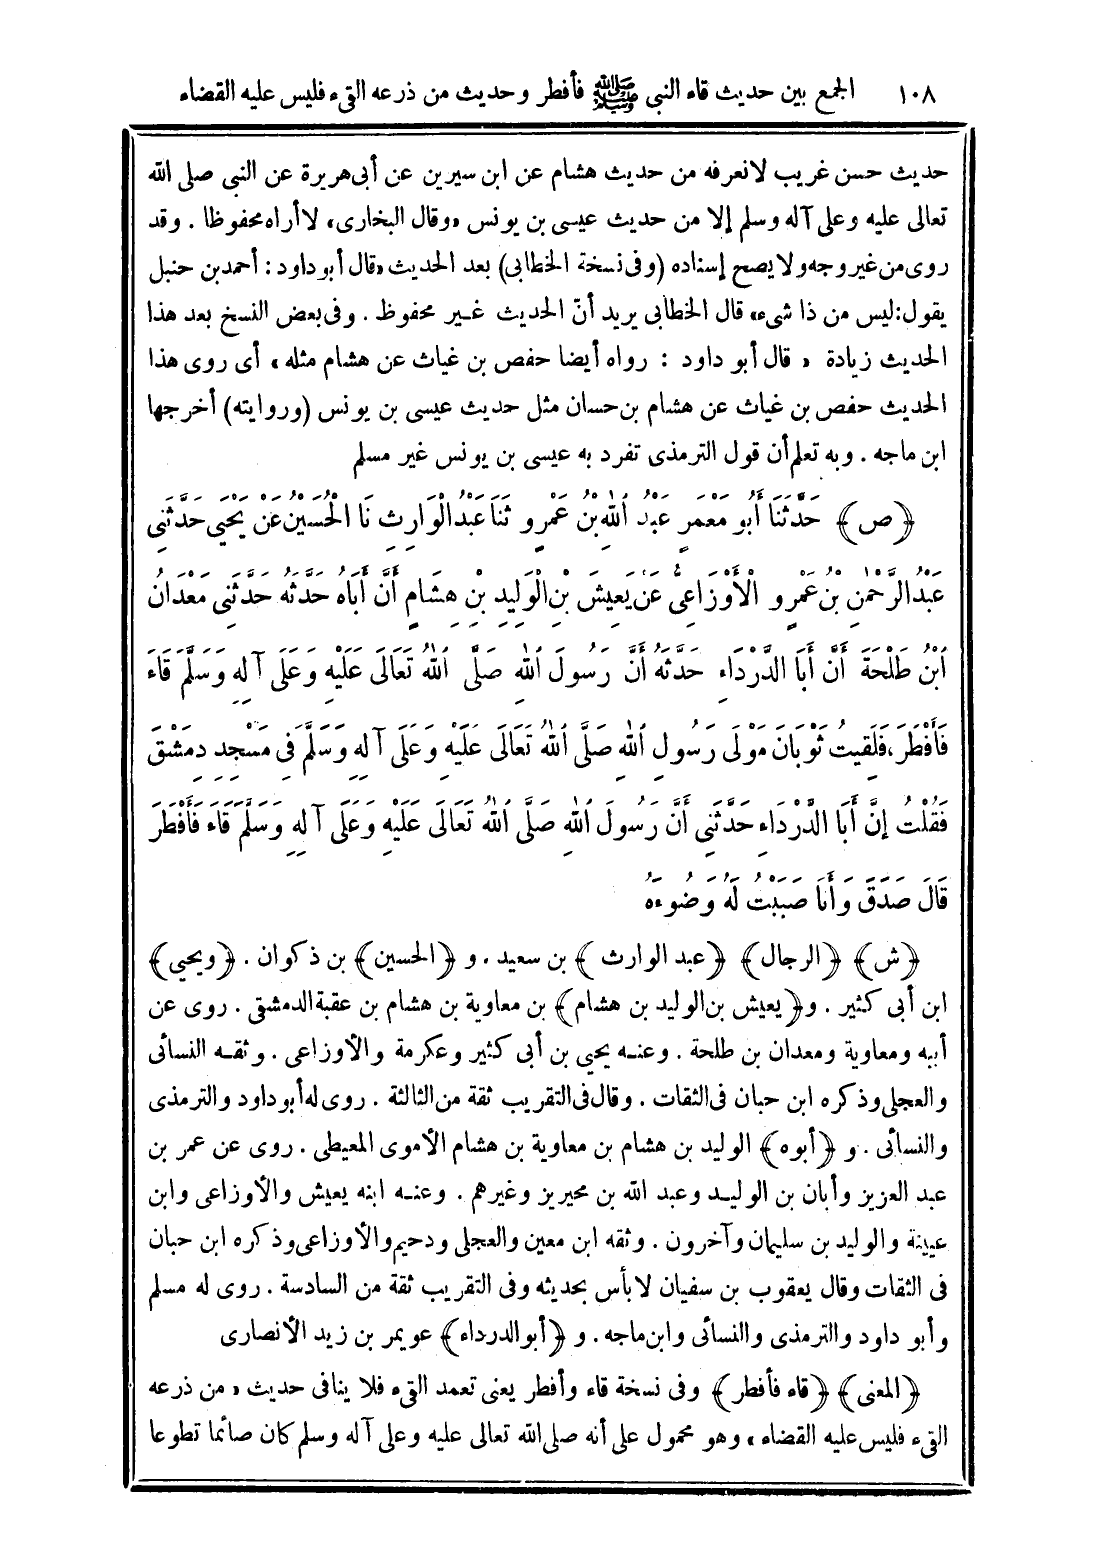 ١٠٨ الجمع بين حديث قاء النبى ﷺ فأفطر وحديث من ذرعه القىء فليس عليه القضاء
حديث حسن غريب لانعرفه من حديث هشام عن ابن سيرين عن أبى هريرة عن النبى صلى الله
تعالى عليه وعلى آله وسلم إلا من حديث عيسى بن يونس «وقال البخارى» لا أراه محفوظا . وقد
روى من غير وجه ولا يصح إسناده (وفى نسخة الخطابى) بعد الحديث «قال أبو داود : أحمد بن حنبل
يقول: ليس من ذا شىء» قال الخطابى يريد أنّ الحديث غير محفوظ . وفى بعض النسخ بعد هذا
الحديث زيادة « قال أبو داود : رواه أيضا حفص بن غياث عن هشام مثله » أى روى هذا
الحديث حفص بن غياث عن هشام بن حسان مثل حديث عيسى بن يونس (وروايته) أخرجها
ابن ماجه . وبه تعلم أن قول الترمذى تفرد به عيسى بن يونس غير مسلم
﴿ص﴾ حَدَّثَنَا أَبُو مَعْمَرٍ عَبْدُ اللهِ بْنُ عَمْرٍو ثَنَا عَبْدُ الْوَارِثِ نَا الْحُسَيْنُ عَنْ يَحْيَى حَدَّثَنِى
عَبْدُ الرَّحْمٰنِ بْنُ عَمْرٍو الْأَوْزَاعِىُّ عَنْ يَعِيشَ بْنِ الْوَلِيدِ بْنِ هِشَامٍ أَنَّ أَبَاهُ حَدَّثَهُ حَدَّثَنِى مَعْدَانُ
ابْنُ طَلْحَةَ أَنَّ أَبَا الدَّرْدَاءِ حَدَّثَهُ أَنَّ رَسُولَ اللهِ صَلَّى اللهُ تَعَالَى عَلَيْهِ وَعَلَى آلِهِ وَسَلَّمَ قَاءَ
فَأَفْطَرَ، فَلَقِيتُ ثَوْبَانَ مَوْلَى رَسُولِ اللهِ صَلَّى اللهُ تَعَالَى عَلَيْهِ وَعَلَى آلِهِ وَسَلَّمَ فِى مَسْجِدِ دِمَشْقَ
فَقُلْتُ إِنَّ أَبَا الدَّرْدَاءِ حَدَّثَنِى أَنَّ رَسُولَ اللهِ صَلَّى اللهُ تَعَالَى عَلَيْهِ وَعَلَى آلِهِ وَسَلَّمَ قَاءَ فَأَفْطَرَ
قَالَ صَدَقَ وَأَنَا صَبَبْتُ لَهُ وَضُوءَهُ
﴿ش﴾ ﴿الرجال﴾ ﴿عبد الوارث﴾ بن سعيد . و ﴿الحسين﴾ بن ذكوان . ﴿ويحيى﴾
ابن أبى كثير . و﴿يعيش بن الوليد بن هشام﴾ بن معاوية بن هشام بن عقبة الدمشقى . روى عن
أبيه ومعاوية ومعدان بن طلحة . وعنه يحيى بن أبى كثير وعكرمة والأوزاعى . وثقه النسائى
والعجلى وذكره ابن حبان فى الثقات . وقال فى التقريب ثقة من الثالثة . روى له أبو داود والترمذى
والنسائى . و ﴿أبوه﴾ الوليد بن هشام بن معاوية بن هشام الأموى المعيطى . روى عن عمر بن
عبد العزيز وأبان بن الوليد وعبد الله بن محيريز وغيرهم . وعنه ابنه يعيش والأوزاعى وابن
عيينة والوليد بن سليمان وآخرون . وثقه ابن معين والعجلى ودحيم والأوزاعى وذكره ابن حبان
فى الثقات وقال يعقوب بن سفيان لا بأس بحديثه وفى التقريب ثقة من السادسة . روى له مسلم
وأبو داود والترمذى والنسائى وابن ماجه . و ﴿أبو الدرداء﴾ عويمر بن زيد الأنصارى
﴿المعنى﴾ ﴿قاء فأفطر﴾ وفى نسخة قاء وأفطر يعنى تعمد القىء فلا ينافى حديث « من ذرعه
القىء فليس عليه القضاء » وهو محمول على أنه صلى الله تعالى عليه وعلى آله وسلم كان صائما تطوعا